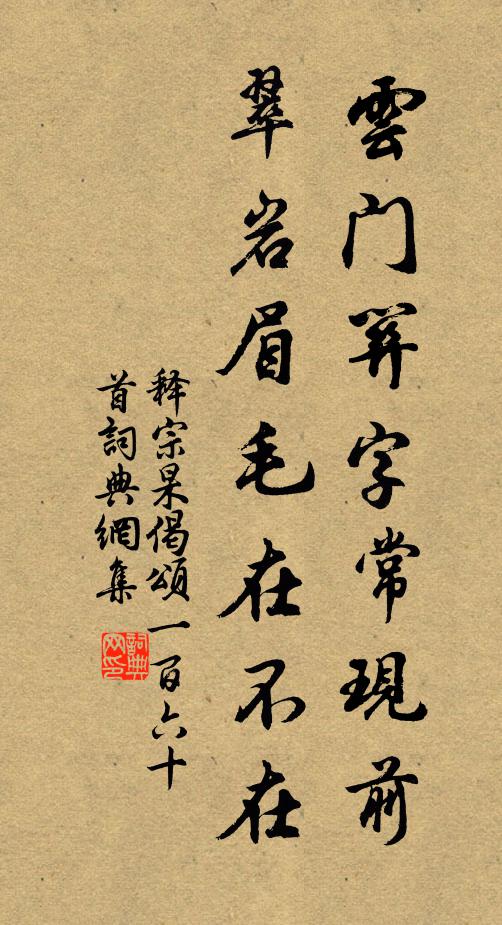 雲門关字常現前
翠岩眉毛在不在
释宗杲偈頌一百六十
首詞典網集
詞典网印